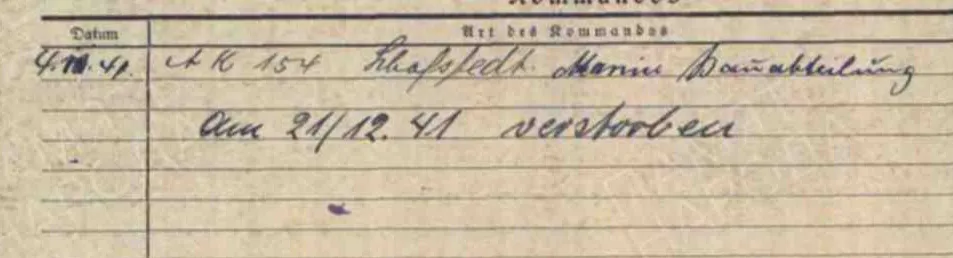 Kommandos
Datum Art des Kommandos
4.10.41. AK 154 Schafstedt. Marine Bauabteilung
am 21/12.41 verstorben